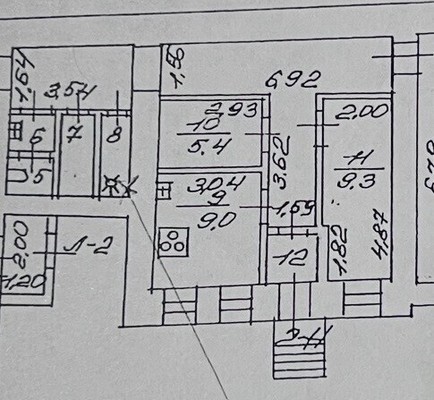 1,64
3,54
1,56
6,92
6
7
8
5
2,93
10
5.4
3,62
2,00
11
9.3
3,04
9
9,0
1,59
1,82
4,87
12
2,00
1,20
Л-2